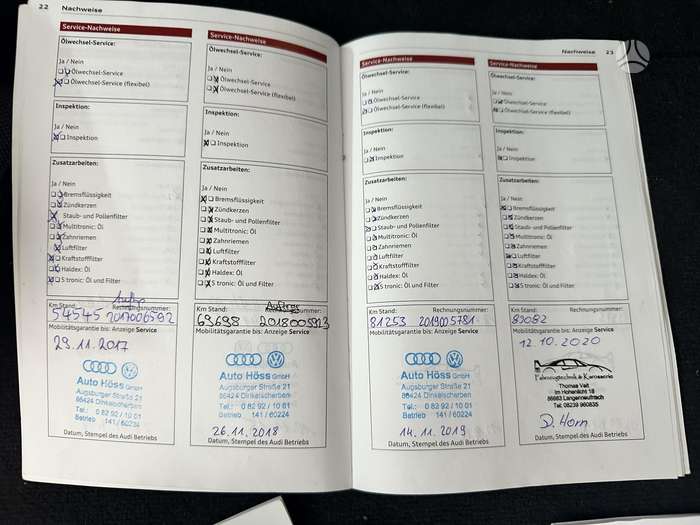 22 Nachweise
Service-Nachweise
Ölwechsel-Service:
Ja / Nein
Ölwechsel-Service
Ölwechsel-Service (flexibel)
Inspektion:
Ja / Nein
Inspektion
Zusatzarbeiten:
Ja / Nein
Bremsflüssigkeit
Zündkerzen
Staub- und Pollenfilter
Multitronic: Öl
Zahnriemen
Luftfilter
Kraftstofffilter
Haldex: Öl
S tronic: Öl und Filter
Km Stand: Rechnungsnummer:
54545 2017006592
Mobilitätsgarantie bis: Anzeige Service
29.11.2017
Auto Höss GmbH
Augsburger Straße 21
86424 Dinkelscherben
Tel.: 0 82 92 / 10 01
Betrieb 141 / 60224
Datum, Stempel des Audi Betriebs
Service-Nachweise
Ölwechsel-Service:
Ja / Nein
Ölwechsel-Service
Ölwechsel-Service (flexibel)
Inspektion:
Ja / Nein
Inspektion
Zusatzarbeiten:
Ja / Nein
Bremsflüssigkeit
Zündkerzen
Staub- und Pollenfilter
Multitronic: Öl
Zahnriemen
Luftfilter
Kraftstofffilter
Haldex: Öl
S tronic: Öl und Filter
Km Stand:
69698
Mobilitätsgarantie bis: Anzeige Service
Auto Höss GmbH
Augsburger Straße 21
86424 Dinkelscherben
Tel.: 0 82 92 / 10 01
Betrieb 141 / 60224
26.11.2018
Datum, Stempel des Audi Betriebs
Nachweise 23
Service-Nachweise
Ölwechsel-Service:
Ja / Nein
Ölwechsel-Service
Ölwechsel-Service (flexibel)
Inspektion:
Ja / Nein
Inspektion
Zusatzarbeiten:
Ja / Nein
Bremsflüssigkeit
Zündkerzen
Staub- und Pollenfilter
Multitronic: Öl
Zahnriemen
Luftfilter
Kraftstofffilter
Haldex: Öl
S tronic: Öl und Filter
Km Stand: Rechnungsnummer:
81253 2019005781
Mobilitätsgarantie bis: Anzeige Service
Auto Höss GmbH
Augsburger Straße 21
86424 Dinkelscherben
Tel.: 0 82 92 / 10 01
Betrieb 141 / 60224
14.11.2019
Datum, Stempel des Audi Betriebs
Service-Nachweise
Ölwechsel-Service:
Ja / Nein
Ölwechsel-Service
Ölwechsel-Service (flexibel)
Inspektion:
Ja / Nein
Inspektion
Zusatzarbeiten:
Ja / Nein
Bremsflüssigkeit
Zündkerzen
Staub- und Pollenfilter
Multitronic: Öl
Zahnriemen
Luftfilter
Kraftstofffilter
Haldex: Öl
S tronic: Öl und Filter
Km Stand: Rechnungsnummer:
Mobilitätsgarantie bis: Anzeige Service
12.10.2020
Fahrzeugtechnik & Karosserie
Thomas Veit
Im Hohenlicht 18
86863 Langenneufnach
Tel: 08239 960835
D. Horn
Datum, Stempel des Audi Betriebs